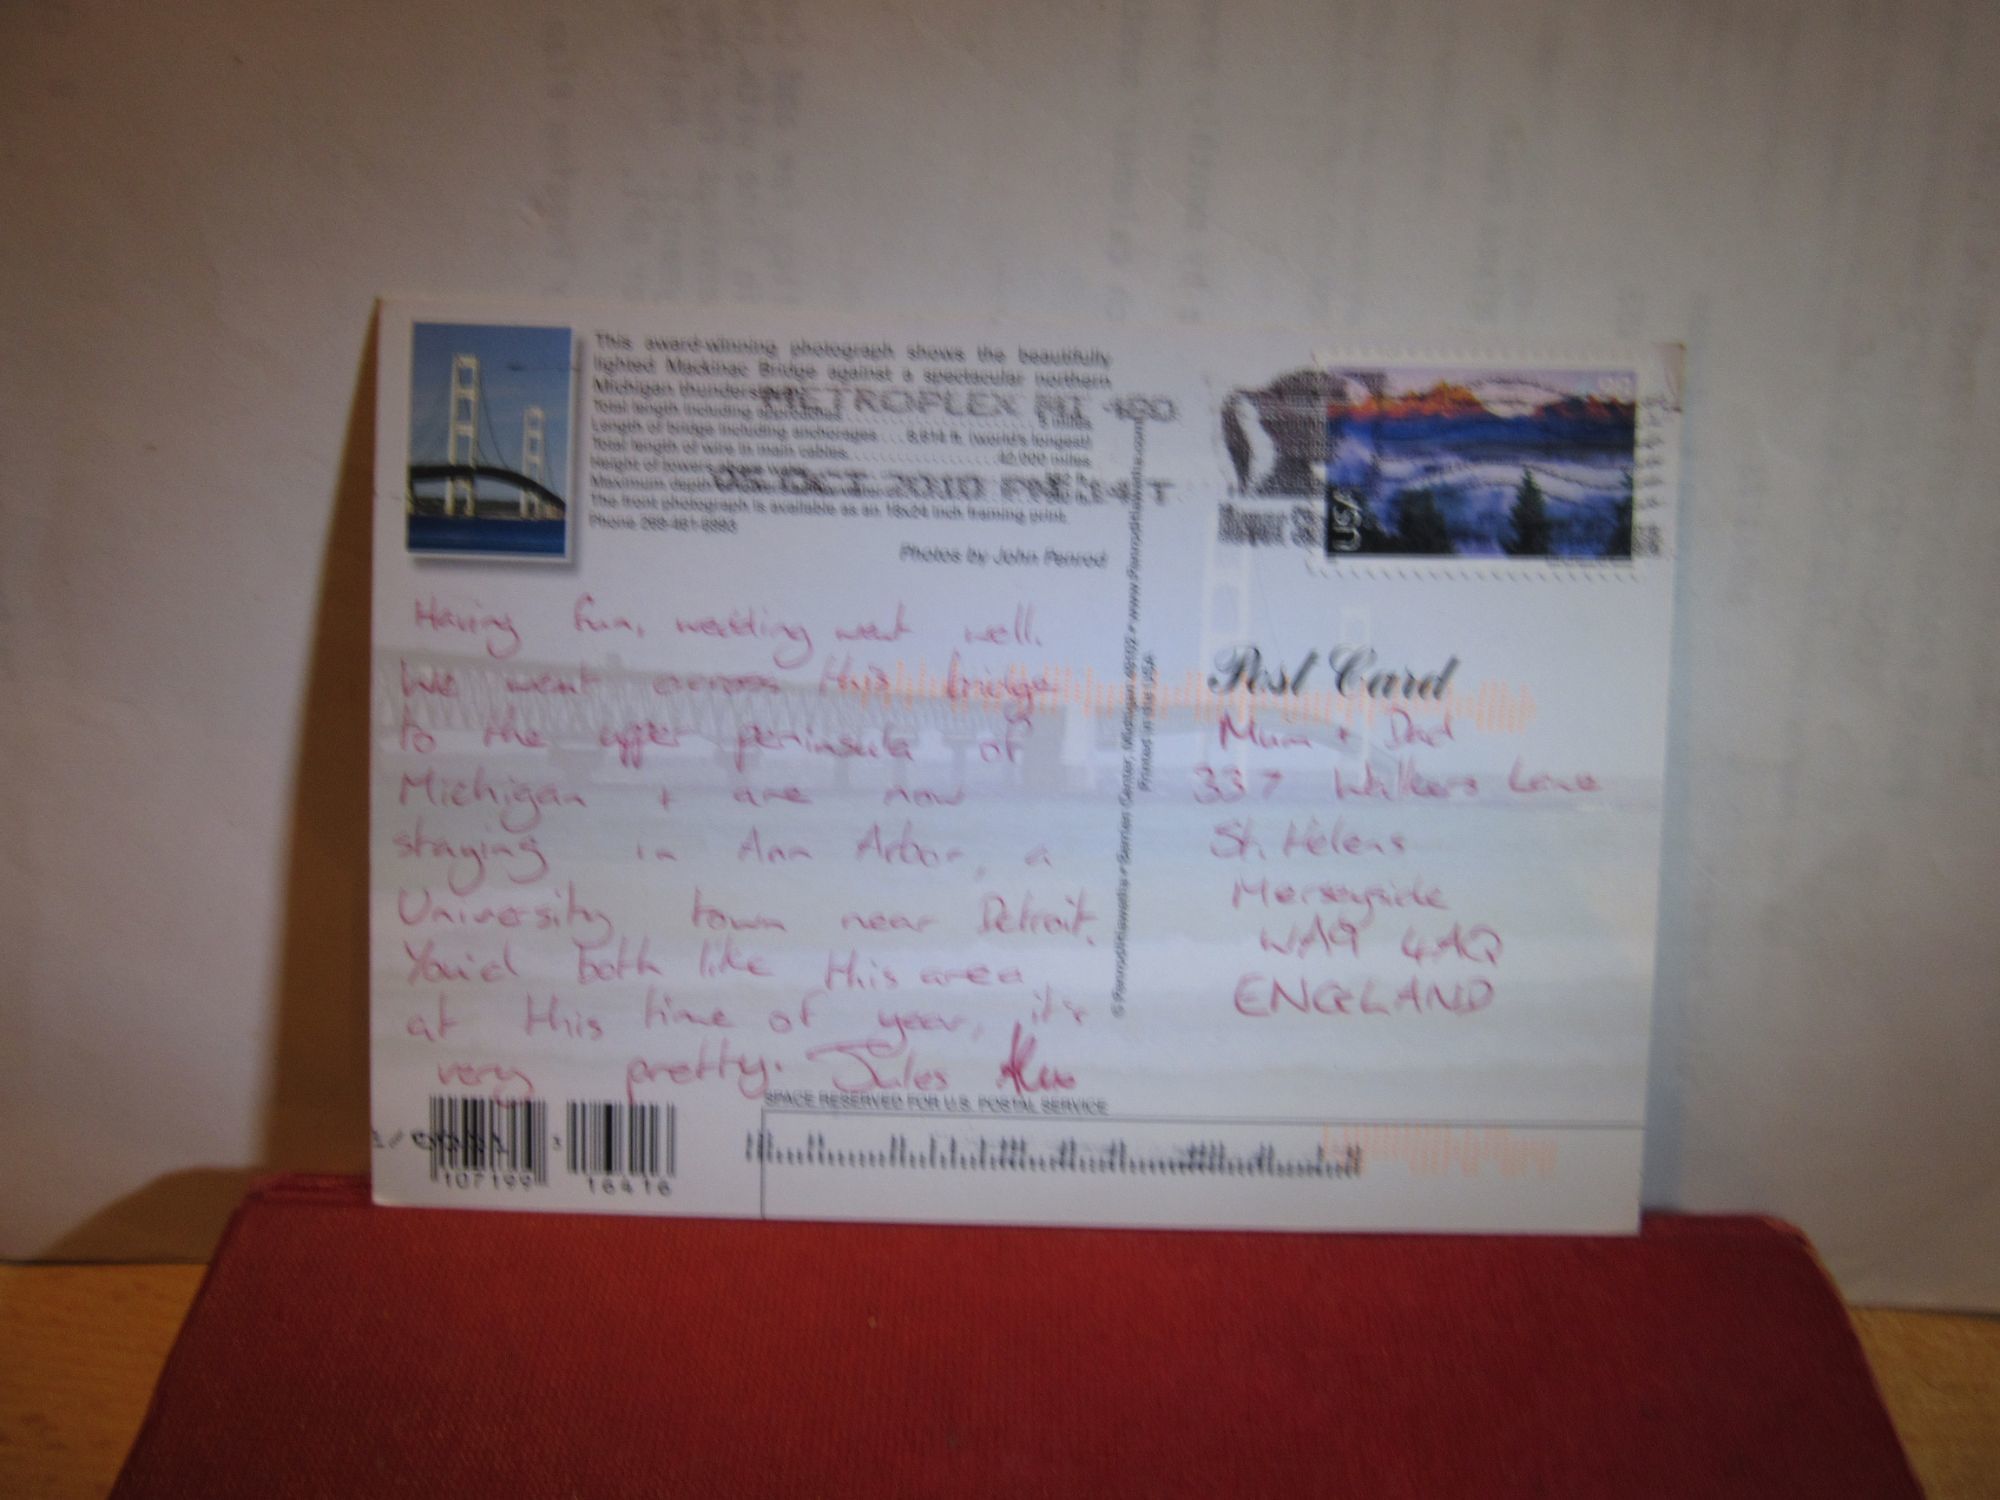 This award-winning photograph shows the beautifully
lighted Mackinac Bridge against a spectacular northern
Michigan
METROPLEX MI 480
Total length including approaches 5 miles
Length of bridge including anchorages.... 8,614 ft. (world's longest)
Total length of wire in main cables 42,000 miles
Height of towers above water
OCT 2010 PM 14 T
Maximum depth
The front photograph is available as an 18x24 inch framing print.
Phone
Photos by John Penrod
USA
Having fun, wedding went well.
We went across this bridge
to the upper peninsula of
Michigan + are now
staying in Ann Arbor, a
University town near Detroit.
You'd both like this area
at this time of year, it's
very pretty. Jules
Post Card
Mum + Dad
337 Walkers Lane
St. Helens
Merseyside
WA9 4AQ
ENGLAND
Berrien Center, Michigan 49102
Printed in the USA
SPACE RESERVED FOR U.S. POSTAL SERVICE
107199 16416